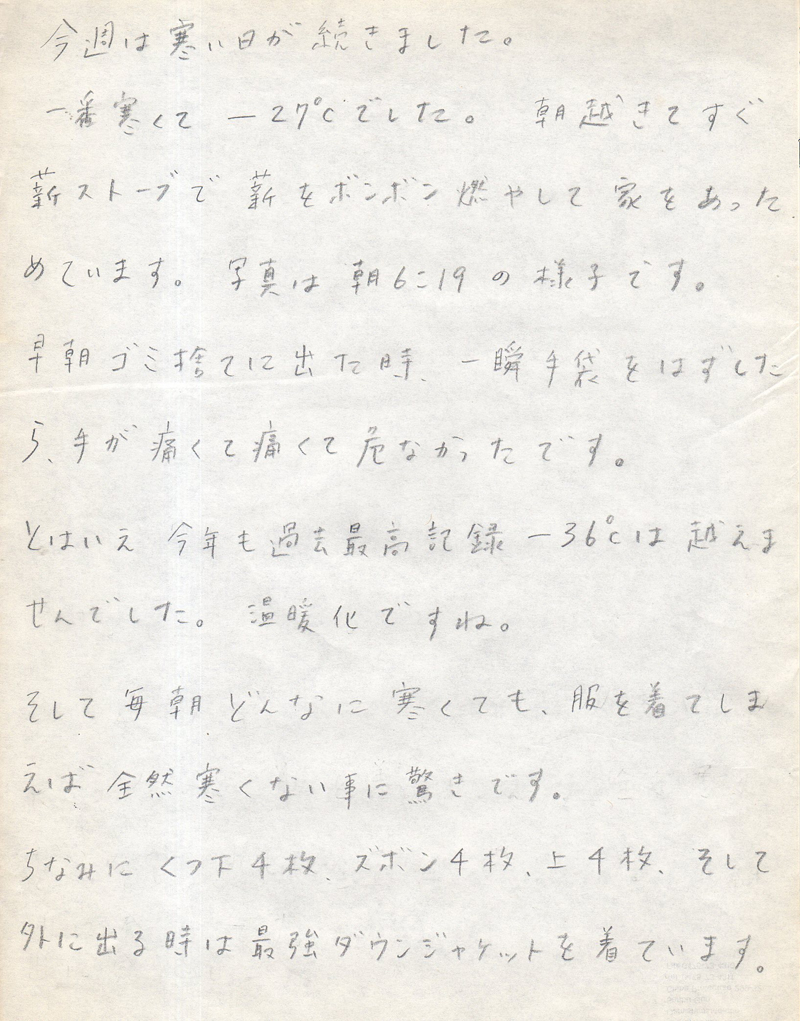 今週は寒い日が続きました。
一番寒くて －27℃でした。 朝越きてすぐ
薪ストーブで 薪をボンボン燃やして 家をあった
めています。 写真は 朝6:19 の 様子です。
早朝 ゴミ捨てに出た時、一瞬手袋をはずした
ら、手が 痛くて痛くて 危なかったです。
とはいえ 今年も過去最高記録 －36℃は 越えま
せんでした。 温暖化ですね。
そして 毎朝 どんなに 寒くても、服を着てしま
えば 全然寒くない事に驚きです。
ちなみに くつ下4枚、ズボン4枚、上4枚、そして
外に出る時は最強ダウンジャケットを着ています。